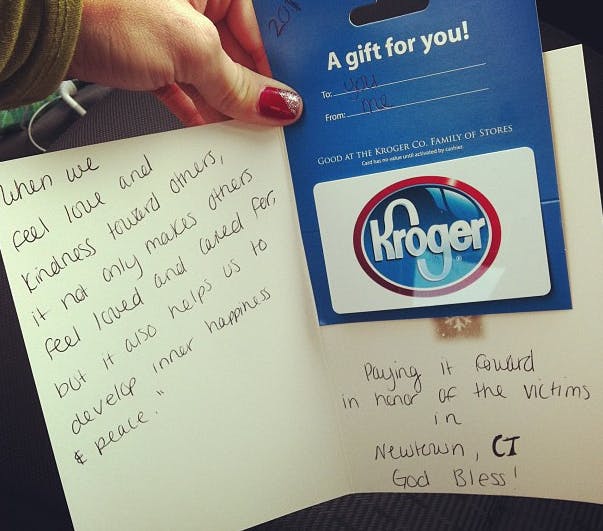 When we
feel love and
kindness toward others,
it not only makes others
feel loved and cared for,
but it also helps us to
develop inner happiness
& peace."
A gift for you!
To: you
From: me
GOOD AT THE KROGER CO. FAMILY OF STORES
Card has no value until activated by cashier.
Kroger
Paying it foward
in honor of the victims
in
Newtown, CT
God Bless!